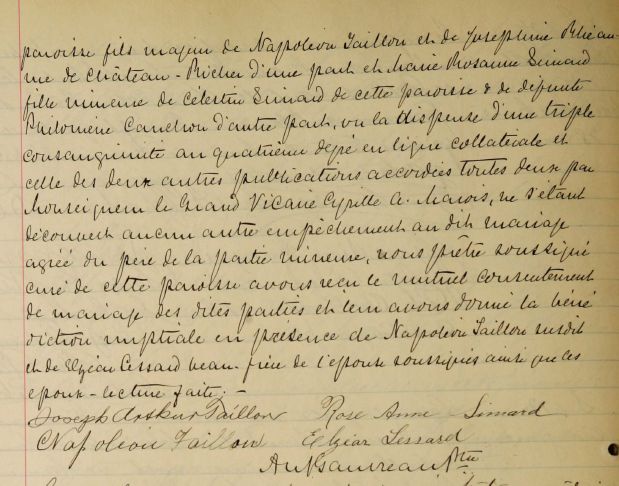 paroisse fils majeur de Napoléon Taillon et de Josephine Rhéau-
me de Château-Richer d'une part et Marie Rosanne Simard
fille mineure de Célestin Simard de cette paroisse & de défunte
Philomène Cauchon d'autre part, vu la dispense d'une triple
consanguinité au quatrième degré en ligne collatérale et
celle des deux autres publications accordées toutes deux par
Monseigneur le Grand Vicaire Cyrille A. Marois, ne s'étant
découvert aucun autre empêchement au dit mariage
agréé du père de la partie mineure, nous prêtre soussigné
curé de cette paroisse avons reçu le mutuel consentement
de mariage des dites parties et leur avons donné la béné
diction nuptiale en présence de Napoléon Taillon susdit
et de Elzéar Lessard beau-frère de l'épouse soussignés ainsi que les
époux - lecture faite; -
Joseph Arthur Taillon Rose Anne Simard
Napoléon Taillon Elzear Lessard
Ptre